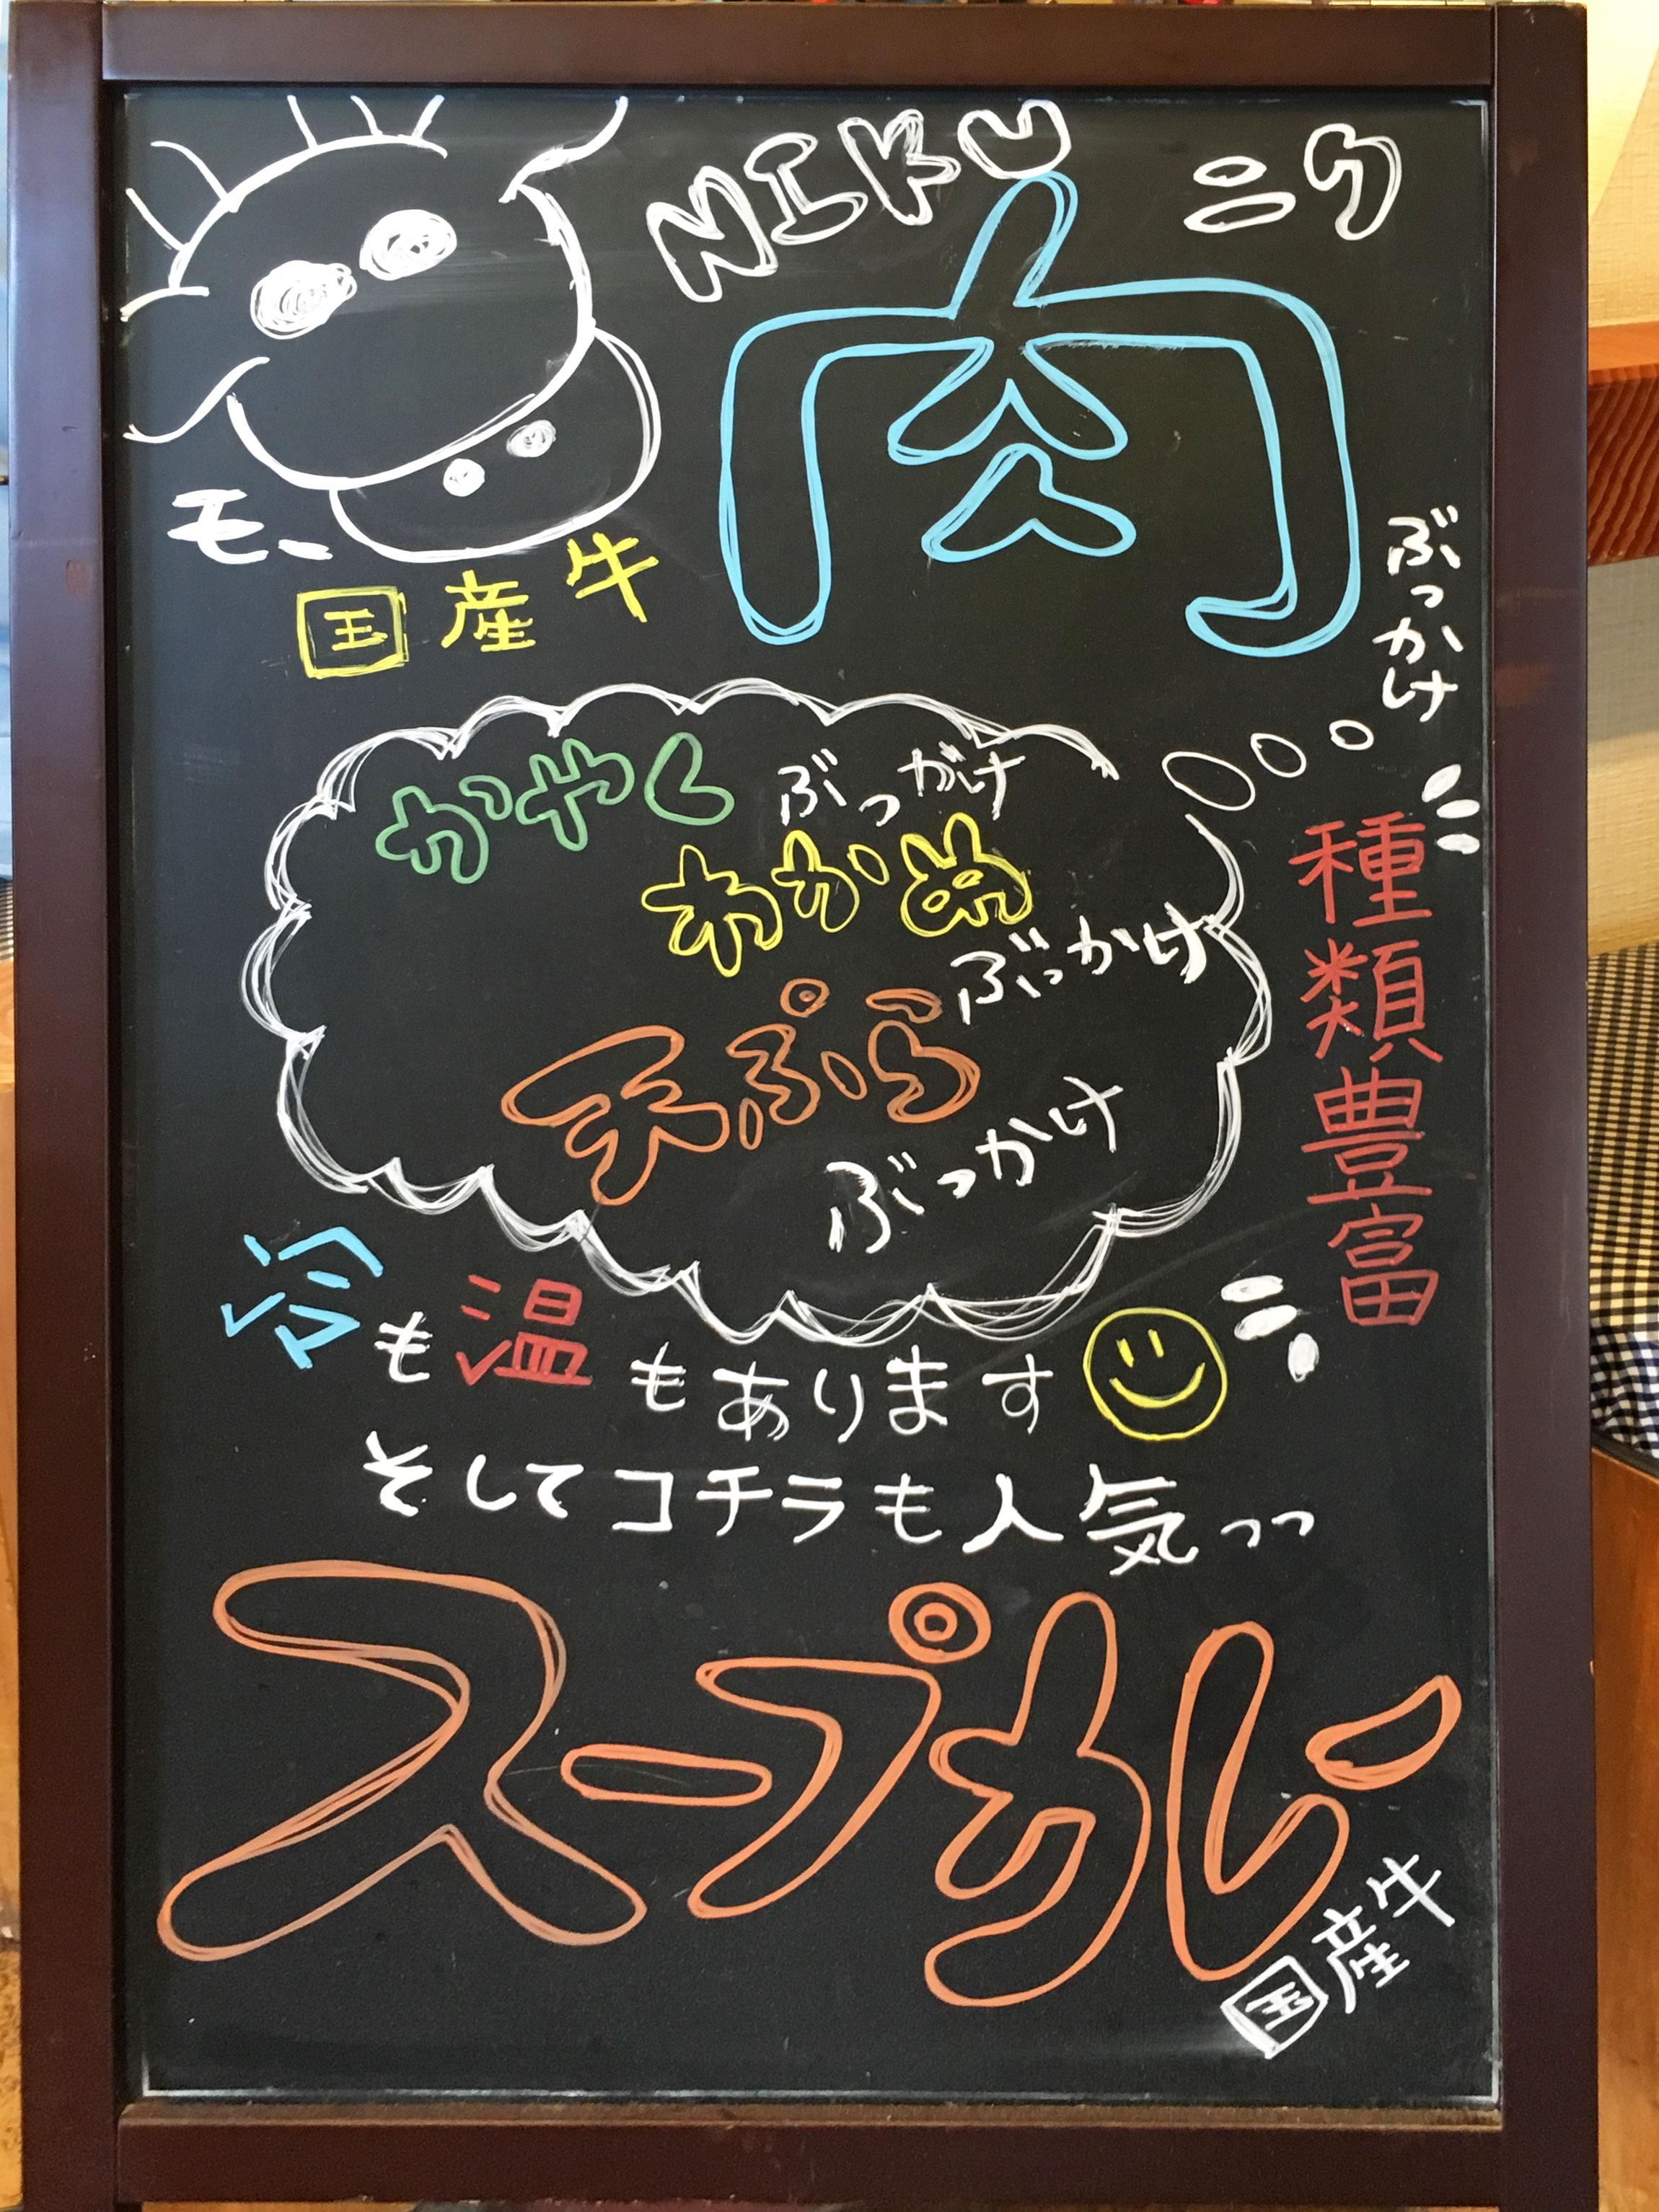 NIKU ニク
肉
ぶっかけ
モー
国産牛
かやくぶっかけ
わかめぶっかけ
天ぷらぶっかけ
種類豊富
冷も温もあります
そしてコチラも人気っっ
スープすじ
国産牛